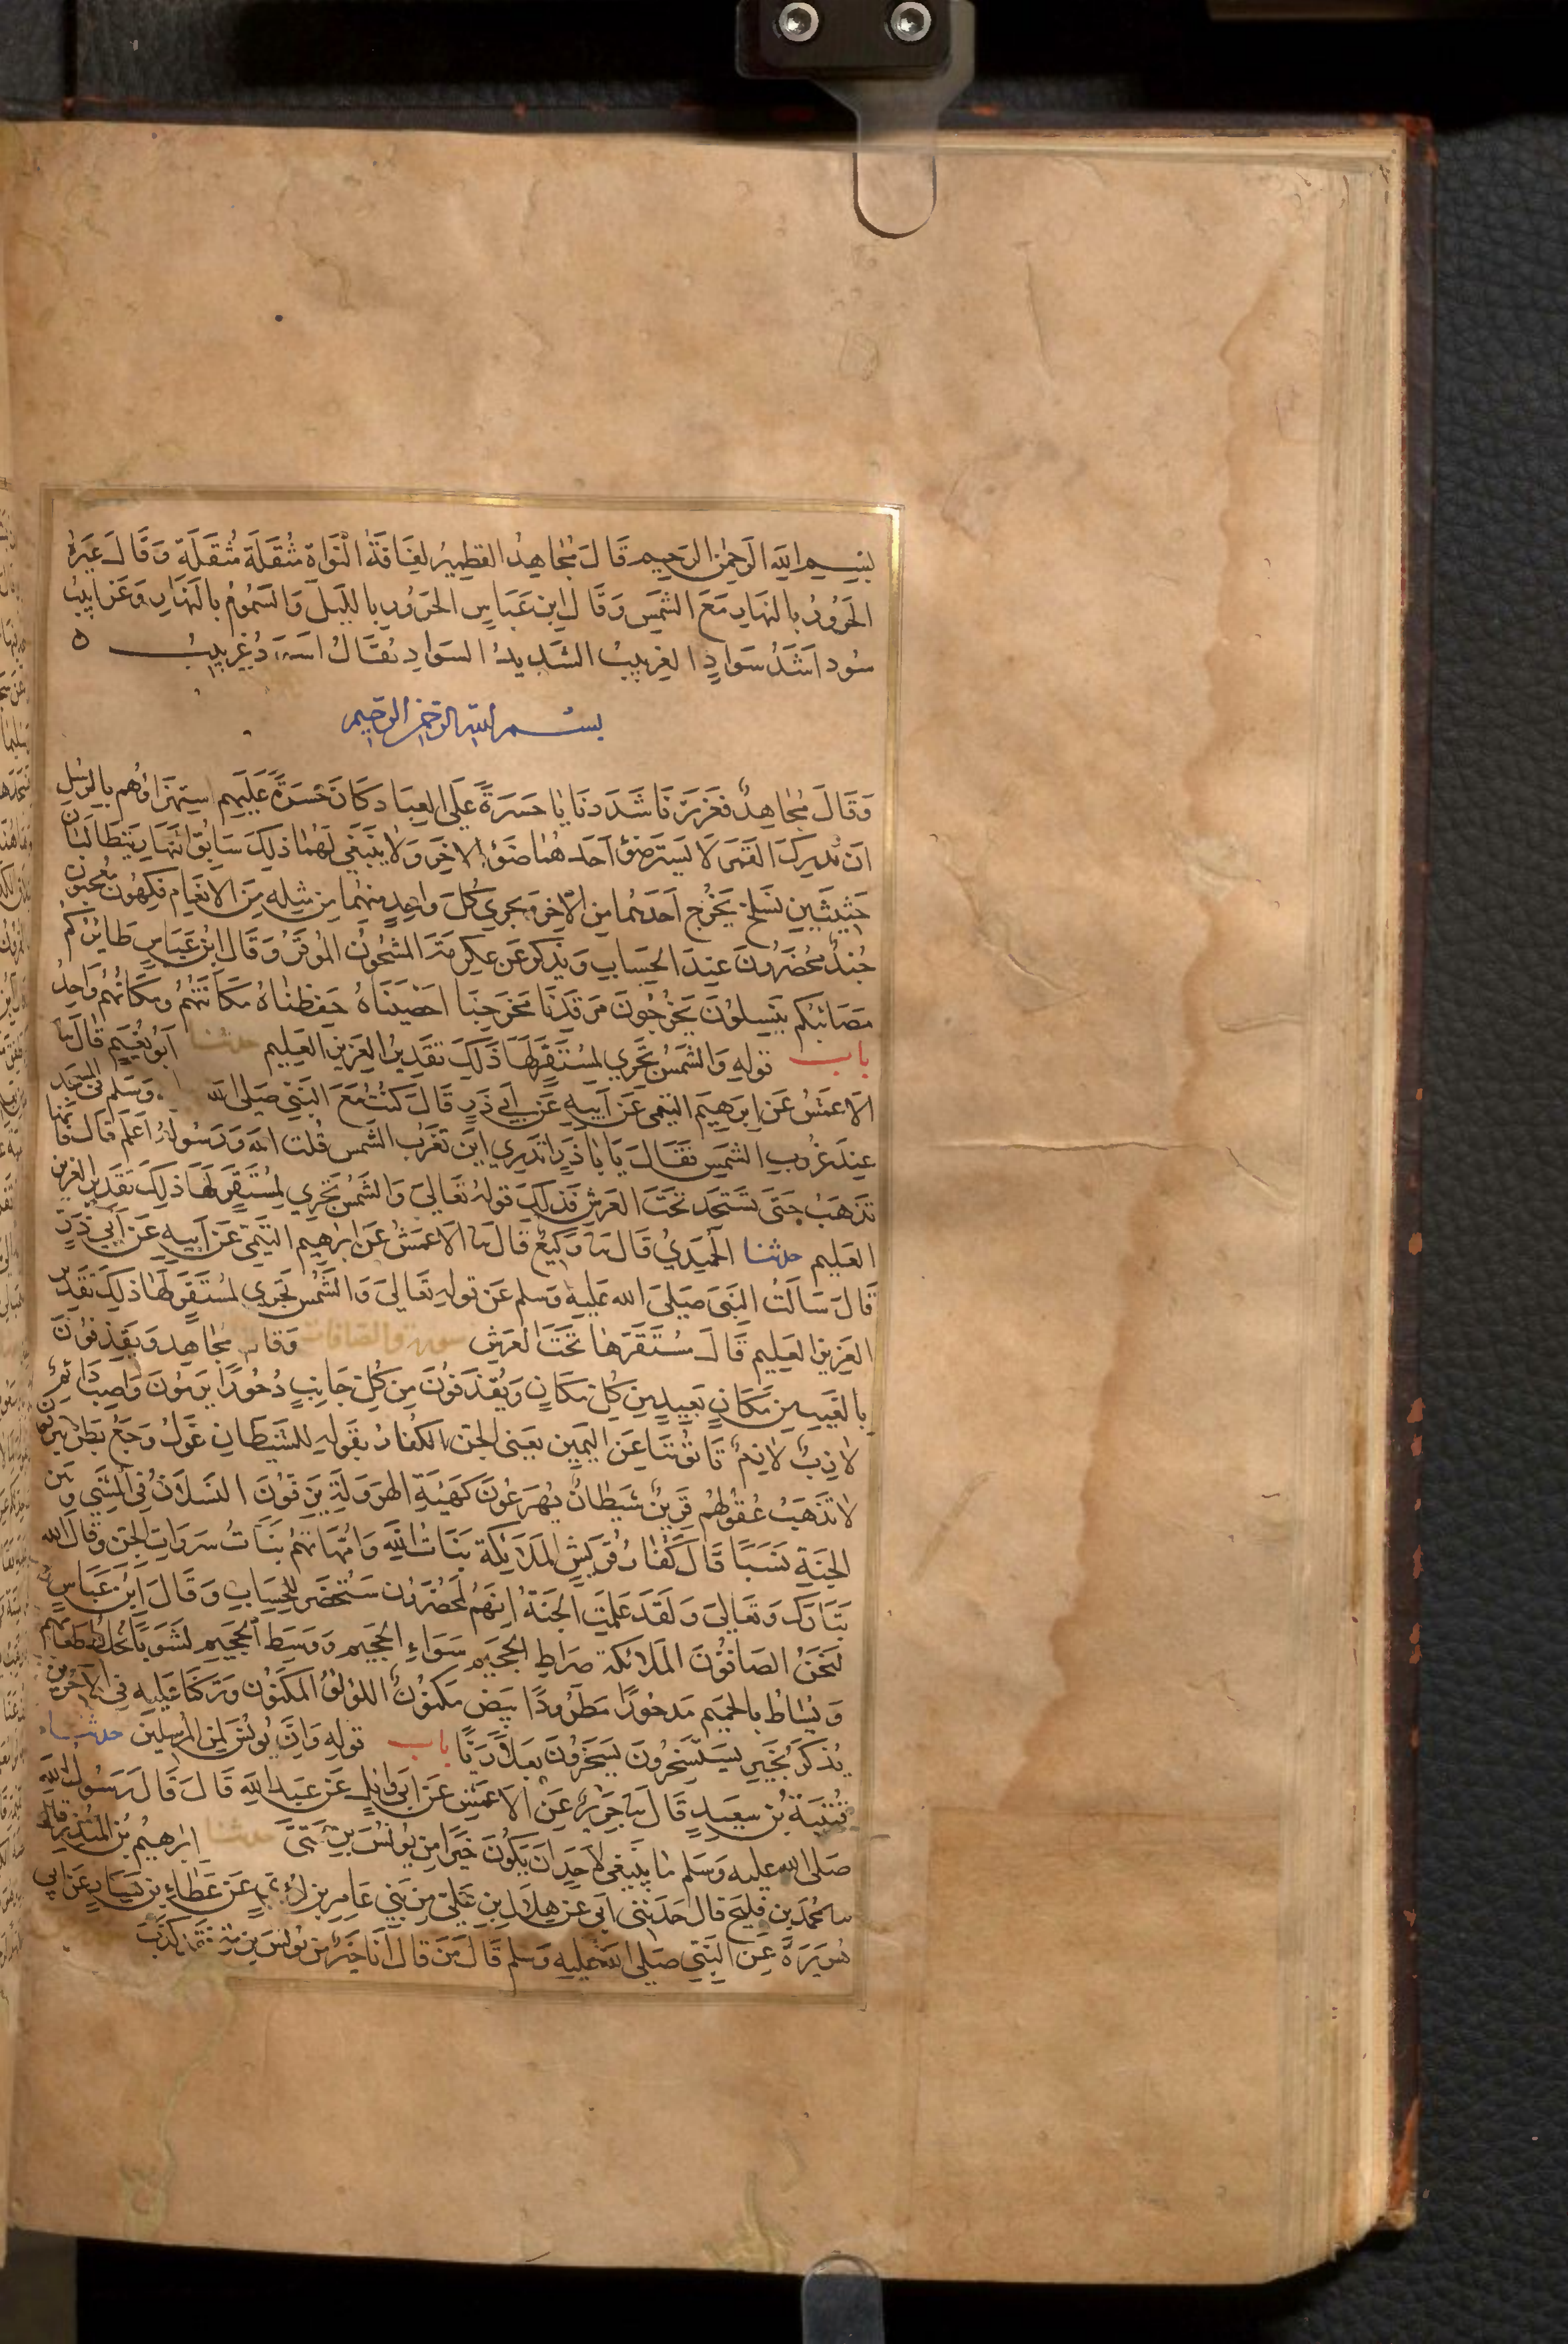 بسم الله الرحمن الرحيم قال مجاهد القطمير لفافة النواة مثقلة مثقلة وقال غيره
الحرور بالنهار مع الشمس وقال ابن عباس الحرور بالليل والسموم بالنهار وغرابيب
سود اشد سواد الغربيب الشديد السواد يقال اسود غربيب ه
بسم الله الرحمن الرحيم
وقال مجاهد فعززنا شددنا يا حسرة على العباد كان حسرة عليهم استهزاؤهم بالرسل
ان تدرك القمر لا يستر ضوء احدهما ضوء الاخر ولا ينبغي لهما ذلك سابق النهار يتطالبان
حثيثين نسلخ يخرج احدهما من الاخر ويجري كل واحد منهما من مثله من الانعام فكهون معجبون
جند محضرون عند الحساب ويذكر عن عكرمة المشحون الموقر وقال ابن عباس طائركم
مصائبكم ينسلون يخرجون مرقدنا مخرجنا احصيناه حفظناه مكانتهم ومكانهم واحد
باب قوله والشمس تجري لمستقر لها ذلك تقدير العزيز العليم حدثنا ابو نعيم قال ثنا
الاعمش عن ابرهيم التيمي عن ابيه عن ابي ذر قال كنت مع النبي صلى الله وسلم في المسجد
عند غروب الشمس فقال يا باذر اتدري اين تغرب الشمس قلت الله ورسوله اعلم قال فانها
تذهب حتى تسجد تحت العرش فذلك قوله تعالى والشمس تجري لمستقر لها ذلك تقدير العزيز
العليم حدثنا الحميدي قال ثنا وكيع قال ثنا الاعمش عن ابرهيم التيمي عن ابيه عن ابي ذر
قال سالت النبي صلى الله عليه وسلم عن قوله تعالى والشمس تجري لمستقر لها ذلك تقدير
العزيز العليم قال مستقرها تحت العرش سورة والصافات وقال مجاهد ويقذفون
بالغيب من مكان بعيد من كل مكان ويقذفون من كل جانب دحورا يرمون واصب دائم
لازب لازم تاتوننا عن اليمين يعني الجن الكفار يقوله للشيطان غول وجع بطن ينزفون
لا تذهب عقولهم قرين شيطان يهرعون كهيئة الهرولة يزفون النسلان في المشي وبين
الجنة نسبا قال كفار قريش الملائكة بنات الله وامهاتهم بنات سروات الجن وقال الله
تبارك وتعالى ولقد علمت الجنة انهم لمحضرون ستحضر للحساب وقال ابن عباس
لنحن الصافون الملائكة صراط الجحيم سواء الجحيم ووسط الجحيم لشوبا يخلط طعامهم
ويساط بالحميم مدحورا مطرودا بيض مكنون اللؤلؤ المكنون وتركنا عليه في الاخرين
يذكر بخير يستسخرون يسخرون بعلا ربا باب قوله وان يونس لمن المرسلين حدثنا
قتيبة بن سعيد قال ثنا جرير عن الاعمش عن ابي وائل عن عبد الله قال قال رسول الله
صلى الله عليه وسلم ما ينبغي لاحد ان يكون خيرا من يونس بن متى حدثنا ابرهيم بن المنذر قال
ثنا محمد بن فليح قال حدثني ابي عن هلال بن علي من بني عامر بن لؤي عن عطاء بن يسار عن ابي
هريرة عن النبي صلى الله عليه وسلم قال من قال انا خير من يونس بن متى فقد كذب